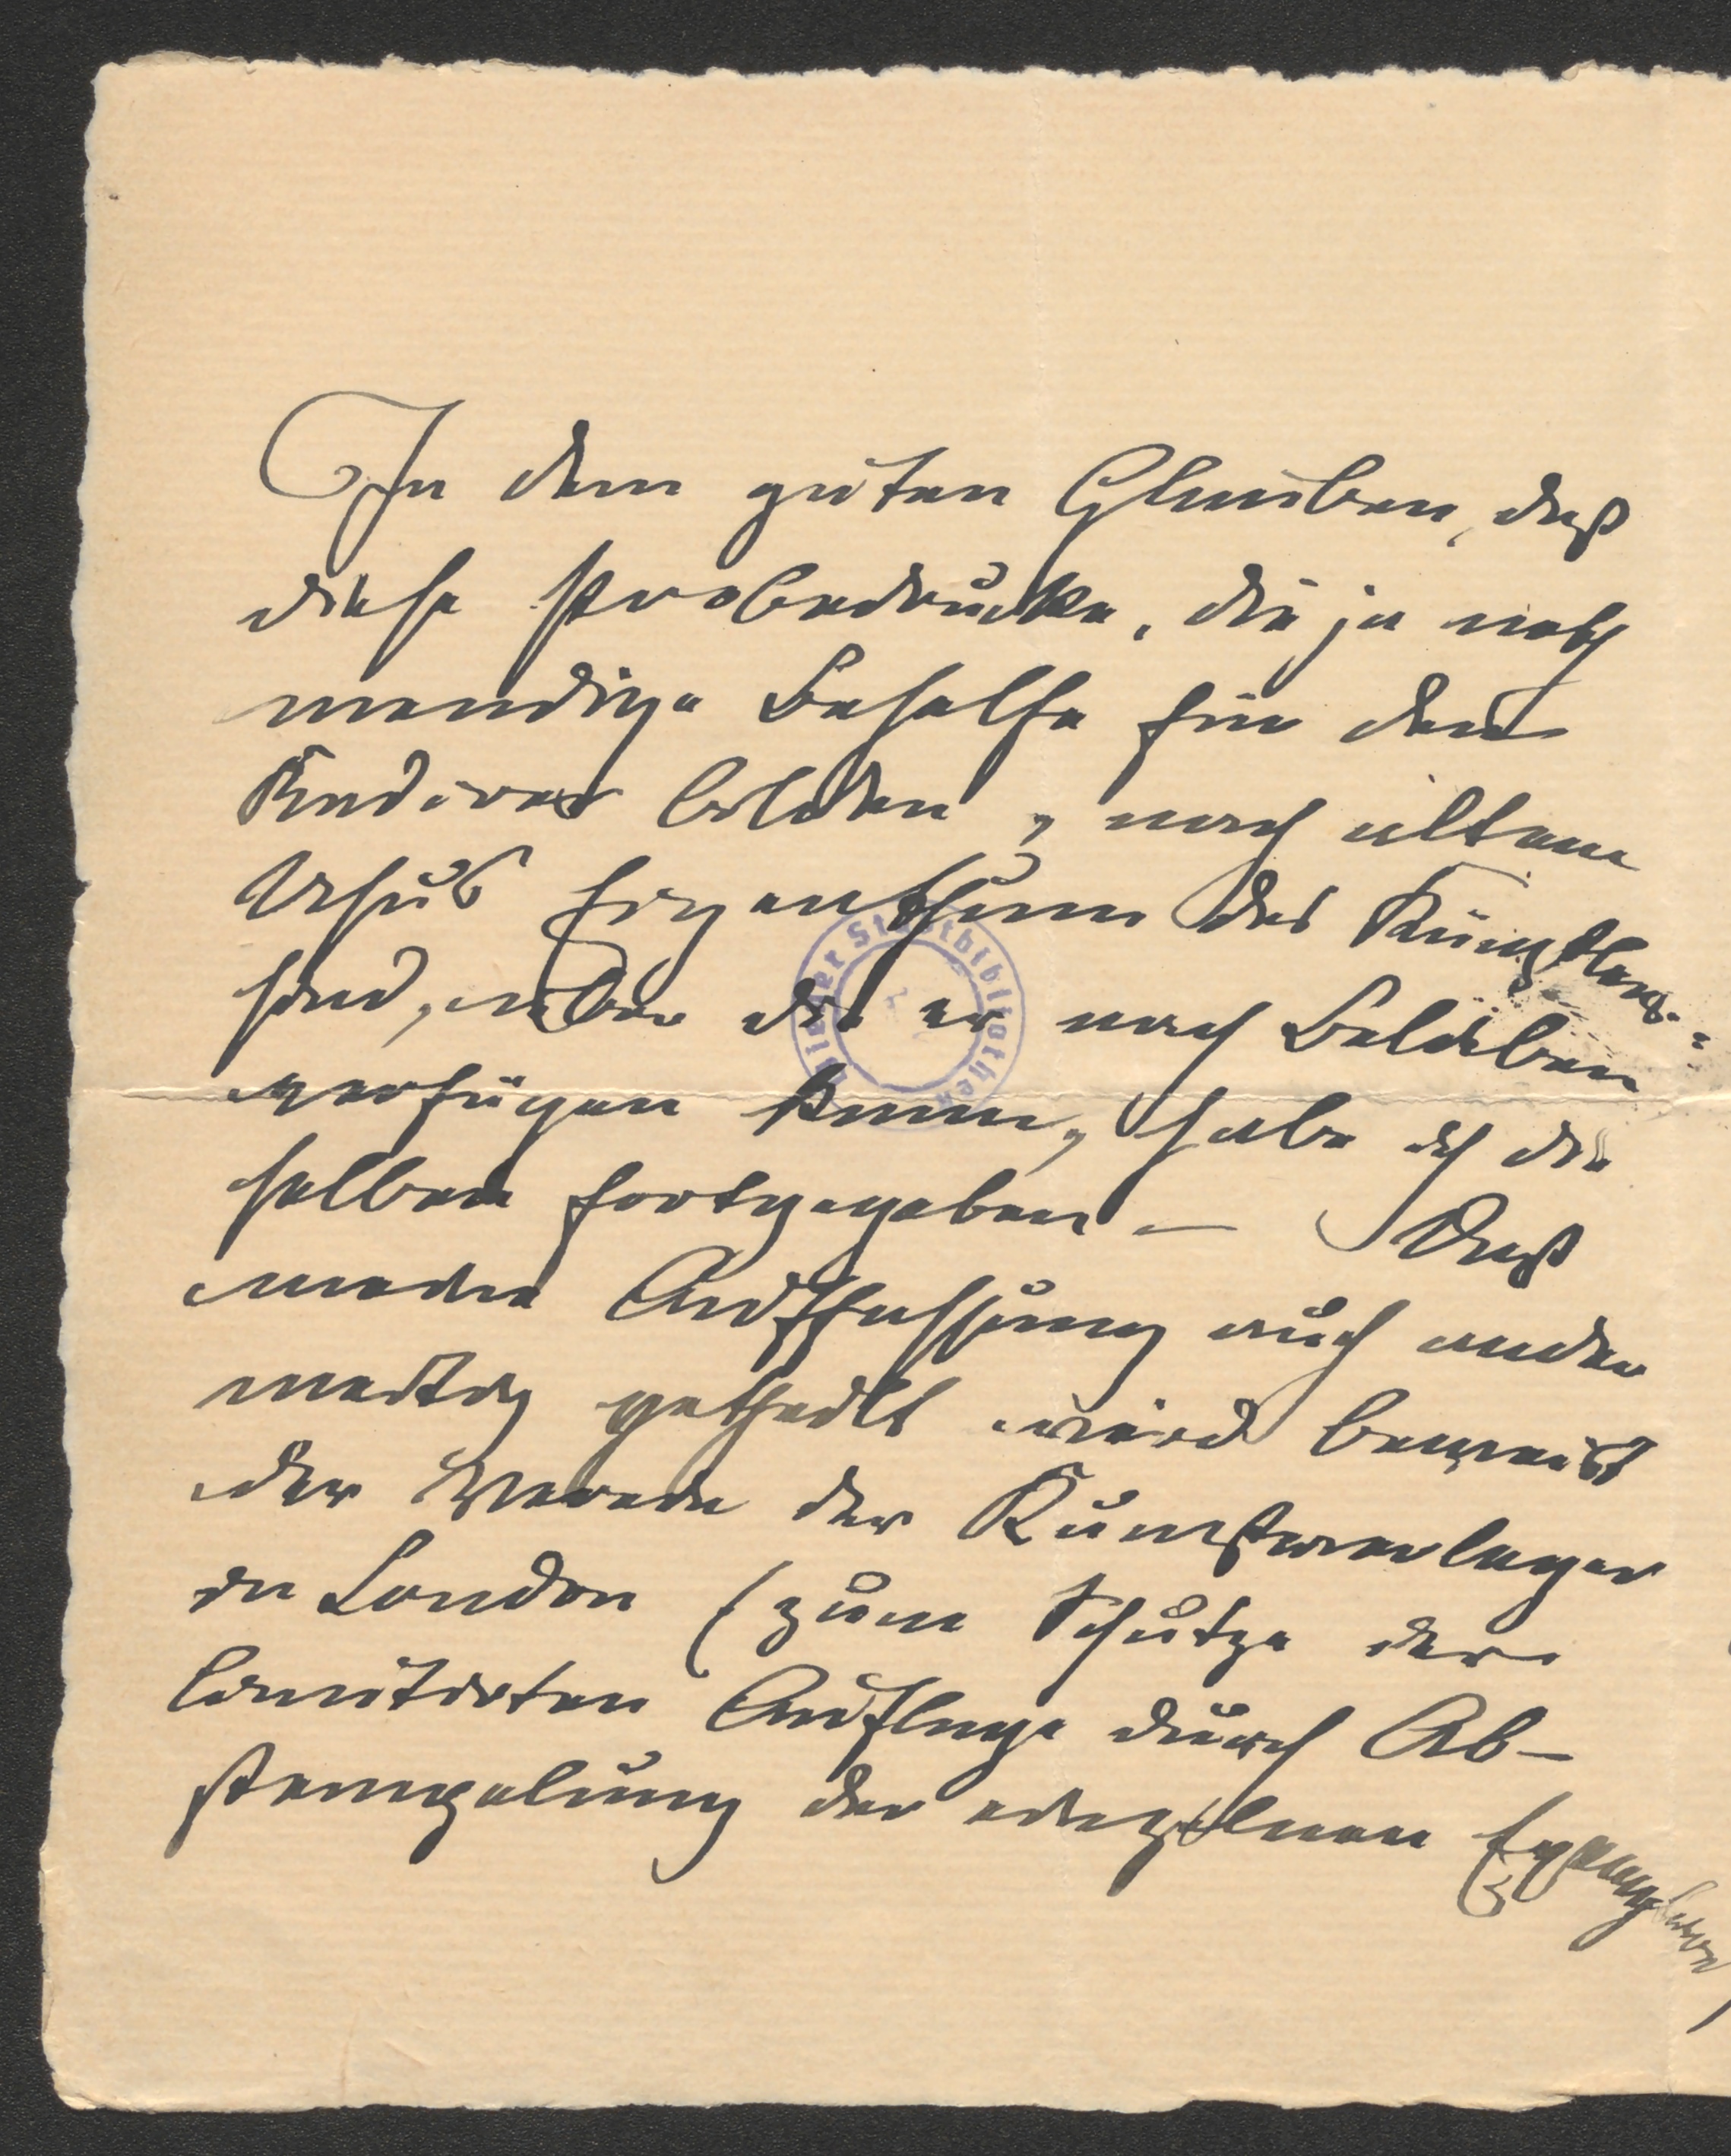 In dem guten Glauben, daß
diese Probedrucke, die ja noth
wendige Behelfe für den
Radierer bilden, nach altem
Usus Eigenthum des Künstlers
sind, über die er nach Belieben
verfügen kann, habe ich die
selben fortgegeben — Daß
meine Auffassung auch ander
weitig getheilt wird beweist
der Verein der Kunstverleger
in London (zum Schutze der
limitirten Auflage durch Ab-
stempelung der einzelnen Exemplare)
Wiener Stadtbibliothek